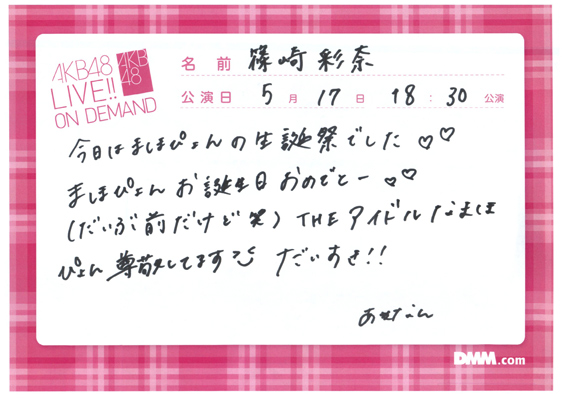 AKB48
LIVE!!
ON DEMAND
AKB
48
名前 篠崎彩奈
公演日 5月17日 18:30公演
今日はましほぴょんの生誕祭でした♡♡
ましほぴょんお誕生日おめでとー♡♡
(だいぶ前だけど笑) THEアイドルなましほ
ぴょん尊敬してます だいすき!!
あやなん
DMM.com